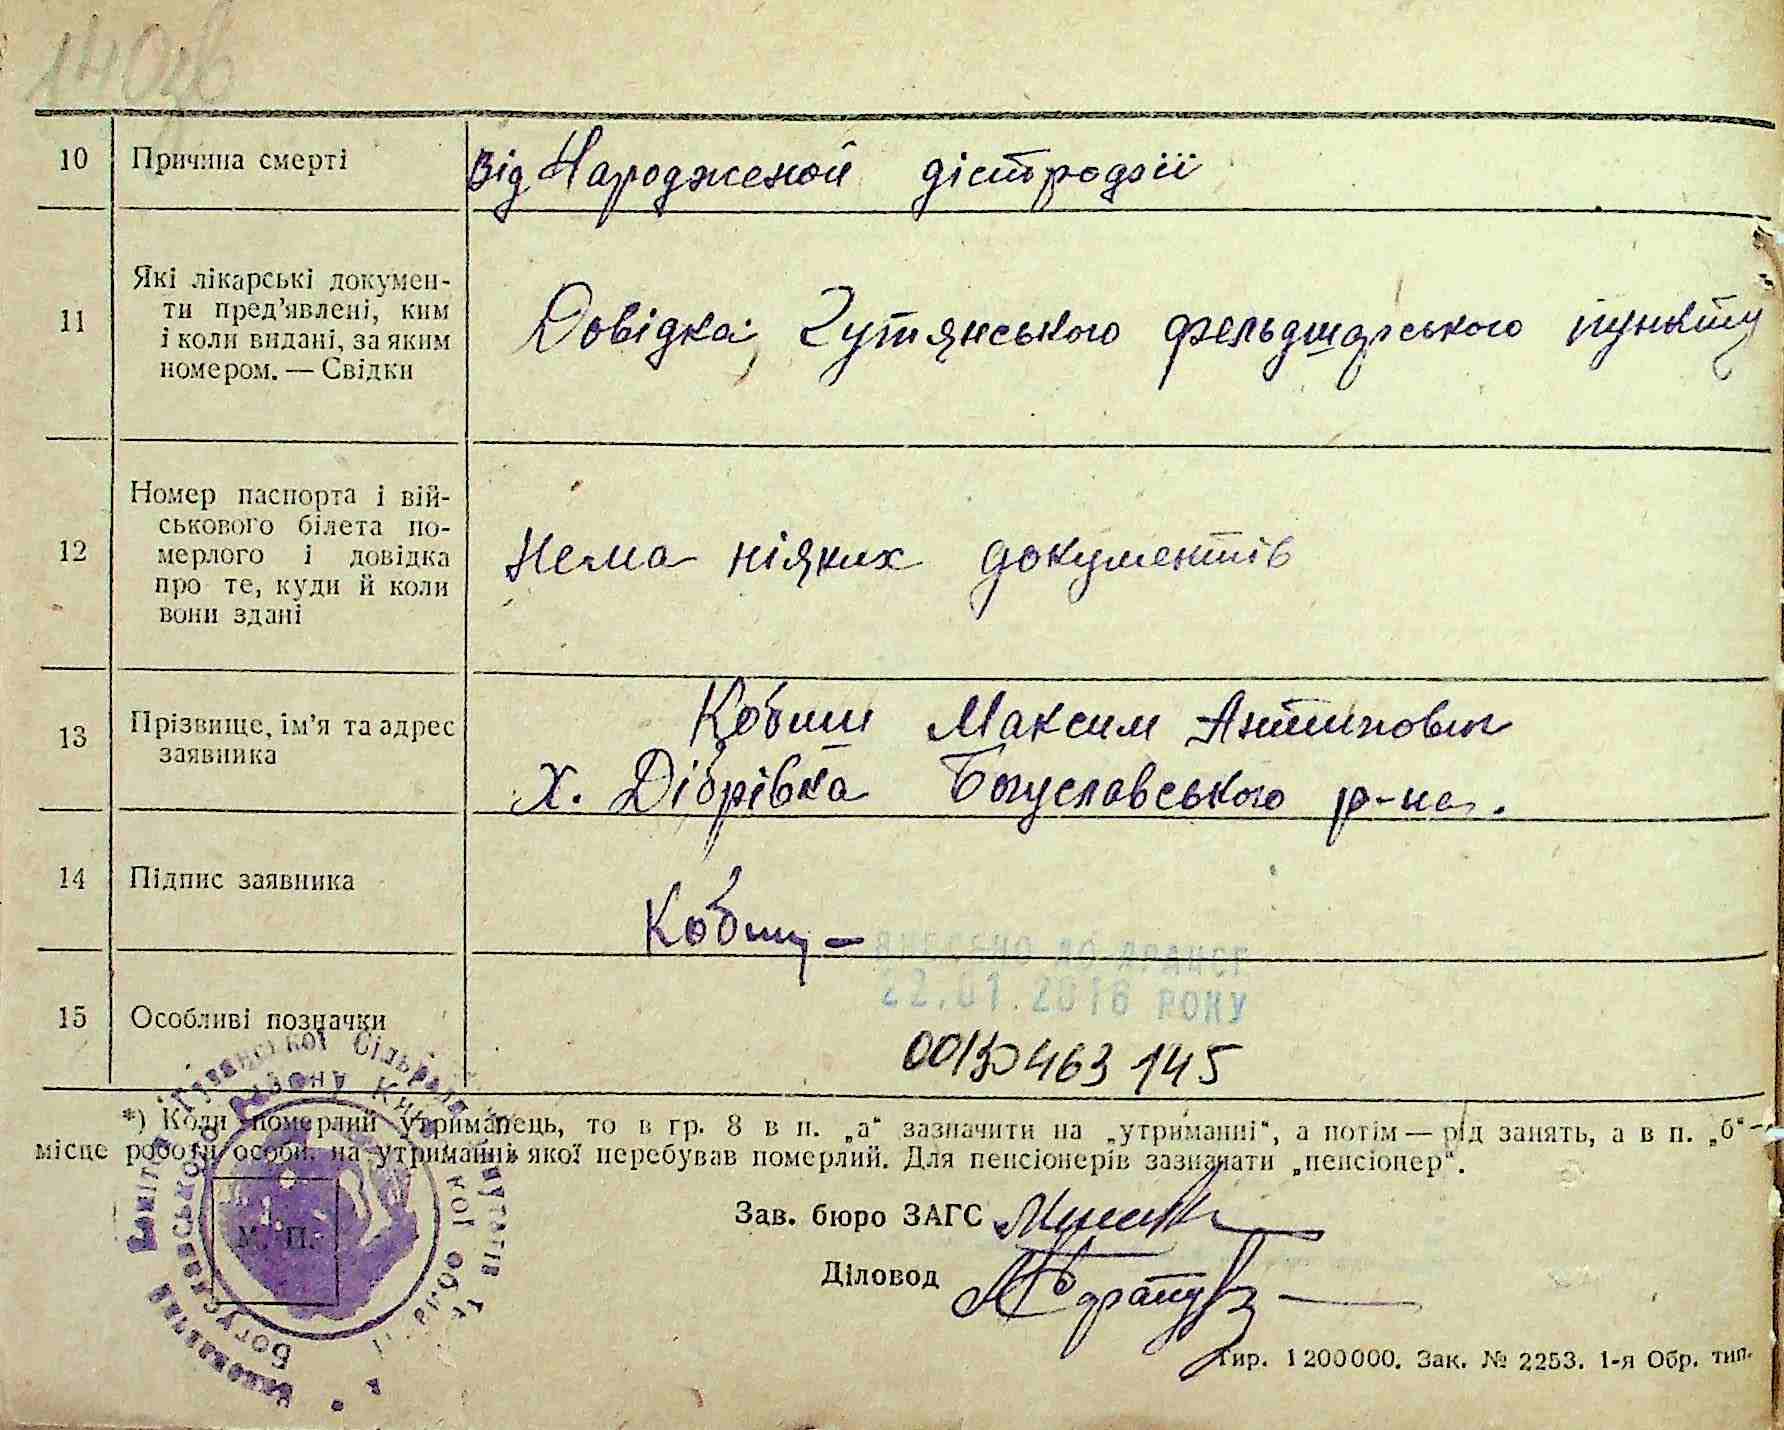 140зв
10 Причина смерті
Від Народженой дістрофії
11 Які лікарські докумен-
ти пред’явлені, ким
і коли видані, за яким
номером. — Свідки
Довідка Гутянського фельдшарського пункту
12 Номер паспорта і вій-
ськового білета по-
мерлого і довідка
про те, куди й коли
вони здані
Нема ніяких документів
13 Прізвище, ім’я та адрес
заявника
Кобиш Максим Антипович
Х. Дібрівка Богуславського р-на.
14 Підпис заявника
Кобиш
15 Особливі позначки
ВНЕСЕНО ДО ДРАЦСГ
22.01.2016 РОКУ
00130463145
*) Коли померлий утриманець, то в гр. 8 в п. „а“ зазначити на „утриманні“, а потім — рід занять, а в п. „б“ —
місце роботи особи, на утриманні якої перебував померлий. Для пенсіонерів зазначати „пенсіонер“.
Зав. бюро ЗАГС
Діловод
М. П.
Тир. 1200000. Зак. № 2253. 1-я Обр. тип.